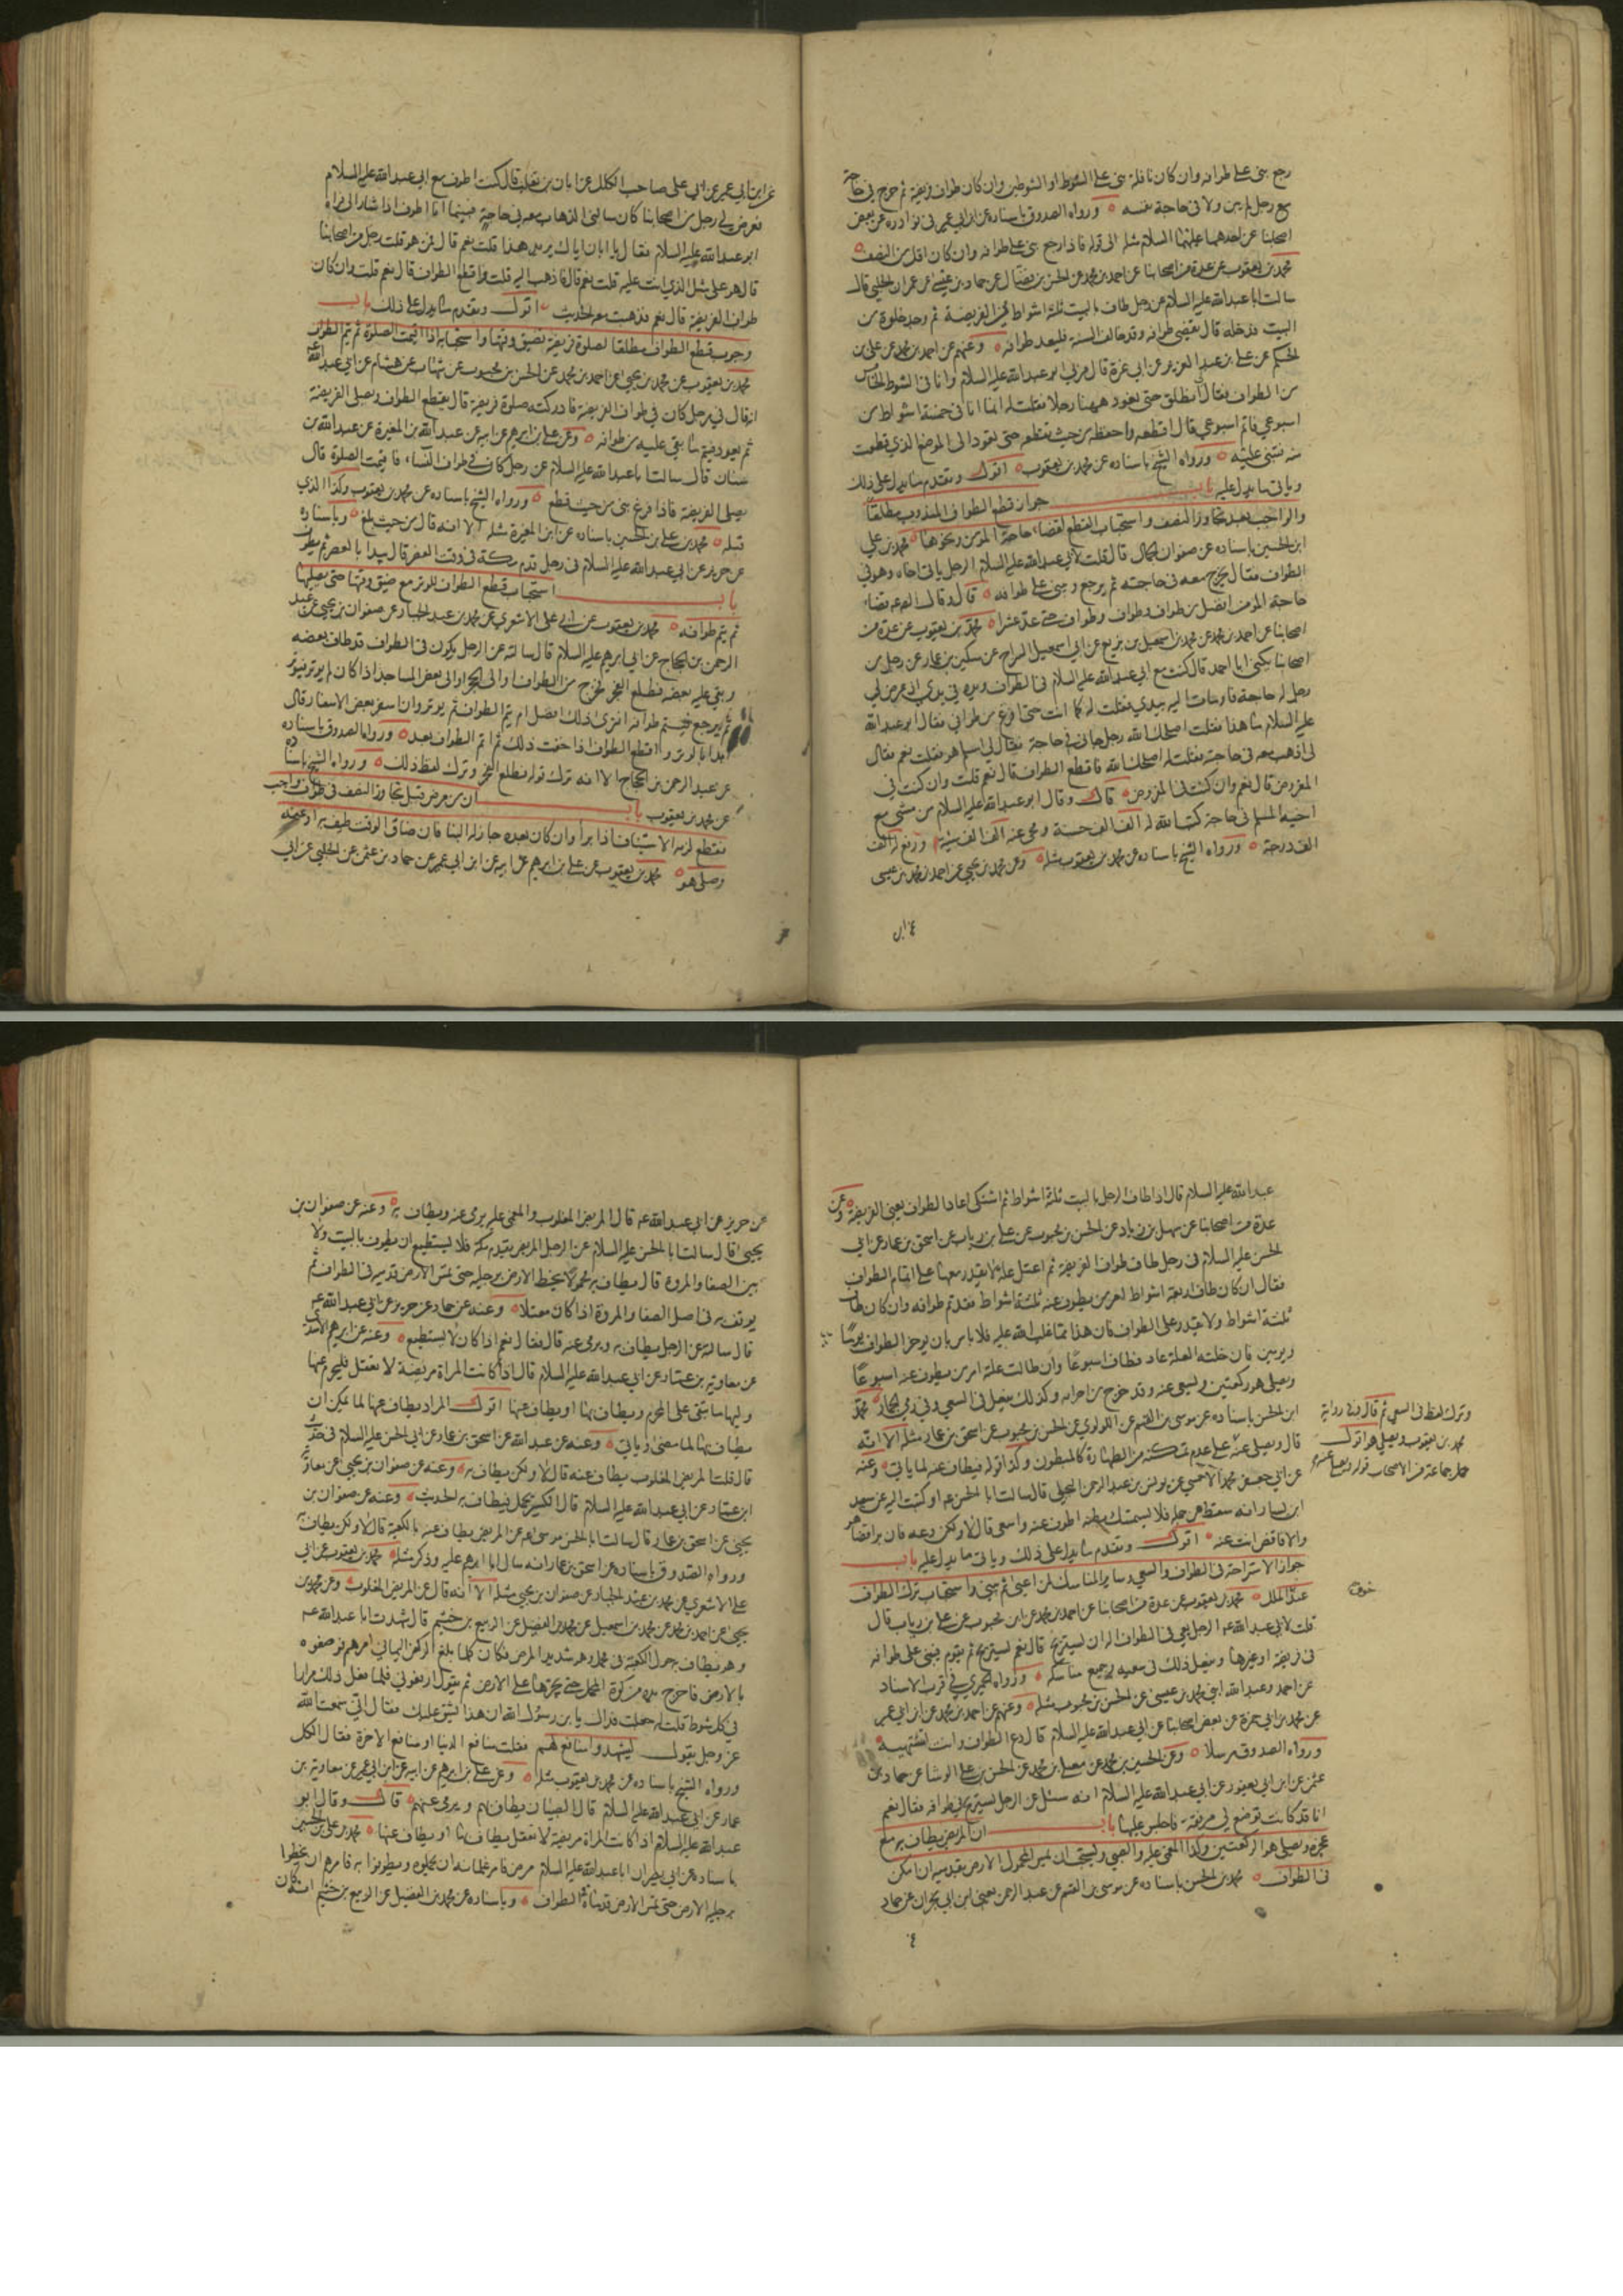 رجع بنى على طوافه وان كان نافلة بنى على الشوط او الشوطين وان كان طواف فريضة ثم خرج في حاجة
مع رجل لم يبن ولا في حاجة نفسه ورواه الصدوق باسناده عن ابن ابي عمير في نوادره عن بعض
اصحابنا عن احدهما عليهما السلام مثله الى قوله فاذا رجع بنى على طوافه وان كان اقل من النصف
محمد بن يعقوب عن عدة من اصحابنا عن احمد بن محمد عن الحسن بن فضال عن حماد بن عيسى عن عمران الحلبي قال
سالت ابا عبد الله عليه السلام عن رجل طاف بالبيت ثلثة اشواط من الفريضة ثم وجد خلوة من
البيت فدخله قال نقض طوافه وقد خالف السنة فليعد طوافه وعنهم عن احمد بن محمد عن علي بن
الحكم عن علي بن عبد العزيز عن ابي غرة قال مر بي ابو عبد الله عليه السلام وانا في الشوط الخامس
من الطواف فقال انطلق حتى نعود ههنا رجلا فقلت له انما انا في خمسة اشواط من
اسبوعي فاتم اسبوعي قال اقطعه واحفظه من حيث تقطعه حتى تعود الى الموضع الذي قطعت
منه فتبني عليه ورواه الشيخ باسناده عن محمد بن يعقوب اقول وتقدم ما يدل على ذلك
وياتي ما يدل عليه باب جواز قطع الطواف المندوب مطلقا
والواجب بعد تجاوز النصف واستحباب القطع لقضاء حاجة المؤمن ونحوها محمد بن علي
ابن الحسين باسناده عن صفوان الجمال قال قلت لابي عبد الله عليه السلام الرجل ياتي اخاه وهو في
الطواف فقال يخرج معه في حاجته ثم يرجع ويبني على طوافه قال وقال الصادق قضاء
حاجة المؤمن افضل من طواف وطواف وطواف حتى عد عشرا محمد بن يعقوب عن عدة من
اصحابنا عن احمد بن محمد عن محمد بن اسمعيل بن بزيع عن ابي اسمعيل السراج عن سكين بن عمار عن رجل من
اصحابنا يكنى ابا احمد قال كنت مع ابي عبد الله عليه السلام في الطواف ويده في يدي اذ عرض لي
رجل له حاجة فاومات اليه بيدي فقلت له كما انت حتى افرغ من طوافي فقال ابو عبد الله
عليه السلام ما هذا فقلت اصلحك الله رجل جاءني في حاجة فقال لي امسلم هو فقلت نعم فقال
لي اذهب معه في حاجته فقلت له اصلحك الله فاقطع الطواف قال نعم قلت وان كنت في
المفروض قال نعم وان كنت في المفروض قال وقال ابو عبد الله عليه السلام من مشى مع
اخيه المسلم في حاجة كتب الله له الف الف حسنة ومحى عنه الف الف سيئة ورفع له الف
الف درجة ورواه الشيخ باسناده عن محمد بن يعقوب مثله وعن محمد بن يحيى عن احمد بن محمد بن عيسى
عن ابن ابي عمير عن ابي علي صاحب الكلل عن ابان بن تغلب قال كنت اطوف مع ابي عبد الله عليه السلام
فعرض لي رجل من اصحابنا كان سالني الذهاب معه في حاجة فبينما انا اطوف اذ اشار الي فراه
ابو عبد الله عليه السلام فقال يا ابان اياك يريد هذا قلت نعم قال فمن هو قلت رجل من اصحابنا
قال هو على مثل الذي انت عليه قلت نعم قال فاذهب اليه قلت واقطع الطواف قال نعم قلت وان كان
طواف الفريضة قال نعم فذهبت معه الحديث اقول وتقدم ما يدل على ذلك باب
وجوب قطع الطواف مطلقا لصلوة فريضة تضيق وقتها واستحبابه اذا اقيمت الصلوة ثم يتم الطواف
محمد بن يعقوب عن محمد بن يحيى عن احمد بن محمد عن الحسن بن محبوب عن شهاب عن هشام عن ابي عبد الله
انه قال في رجل كان في طواف الفريضة فادركته صلوة فريضة قال يقطع الطواف ويصلي الفريضة
ثم يعود فيتم ما بقي عليه من طوافه وعن علي بن ابرهيم عن ابيه عن عبد الله بن المغيرة عن عبد الله بن
سنان قال سالت ابا عبد الله عليه السلام عن رجل كان في طواف النساء فاقيمت الصلوة قال
يصلي الفريضة فاذا فرغ بنى من حيث قطع ورواه الشيخ باسناده عن محمد بن يعقوب وكذا الذي
قبله محمد بن علي بن الحسين باسناده عن ابن المغيرة مثله الا انه قال من حيث بلغ وباسناده
عن حريز عن ابي عبد الله عليه السلام في رجل قدم مكة في وقت العصر قال يبدا بالعصر ثم يطوف
باب استحباب قطع الطواف للوتر مع ضيق وقتها حتى يصليها
ثم يتم طوافه محمد بن يعقوب عن ابي علي الاشعري عن محمد بن عبد الجبار عن صفوان بن يحيى عن عبد
الرحمن بن الحجاج عن ابي ابرهيم عليه السلام قال سالته عن الرجل يكون في الطواف قد طاف بعضه
وبقي عليه بعضه فطلع الفجر فخرج من الطواف الى الحجر او الى بعض المساجد اذا كان لم يوتر فيوتر
ثم يرجع فيتم طوافه افترى ذلك افضل ام يتم الطواف ثم يوتر وان اسفر بعض الاسفار قال
ابدا بالوتر واقطع الطواف اذا خفت ذلك ثم اتم الطواف بعد ورواه الصدوق باسناده
عن عبد الرحمن بن الحجاج الا انه ترك قوله فطلع الفجر وترك لفظ ذلك ورواه الشيخ باسناده
عن محمد بن يعقوب باب ان من مرض قبل تجاوز النصف في طواف واجب
فقطع لزمه الاستيناف اذا برأ وان كان بعده جاز له البنا فان ضاق الوقت طيف به او عنه
وصلى هو محمد بن يعقوب عن علي بن ابرهيم عن ابيه عن ابن ابي عمير عن حماد بن عثمن عن الحلبي عن ابي
عبد الله عليه السلام قال اذا طاف الرجل بالبيت ثلثة اشواط ثم اشتكى اعاد الطواف يعني الفريضة وعن
عدة من اصحابنا عن سهل بن زياد عن الحسن بن محبوب عن علي بن رياب عن اسحق بن عمار عن ابي
الحسن عليه السلام في رجل طاف طواف الفريضة ثم اعتل علة لا يقدر معها على اتمام الطواف
فقال ان كان طاف اربعة اشواط امر من يطوف عنه ثلثة اشواط فقد تم طوافه وان كان طاف
ثلثة اشواط ولا يقدر على الطواف فان هذا مما غلب الله عليه فلا باس بان يوخر الطواف يوما
ويومين فان خلته العلة عاد فطاف اسبوعا وان طالت علته امر من يطوف عنه اسبوعا
ويصلي هو ركعتين ويسعى عنه وقد خرج من احرامه وكذلك يفعل في السعي وفي رمي الجمار محمد
ابن الحسن باسناده عن موسى بن القسم عن اللؤلؤي عن الحسن بن محبوب عن اسحق بن عمار مثله الا انه
قال ويصلي عنه
وترك لفظ في السعي ثم قال وفي رواية
محمد بن يعقوب ويصلي هو اقول
حمل جماعة من الاصحاب قوله ويصلي عنه
على عدم تمكنه من الطهارة كالمبطون وكذا قوله فيطاف عنه لما ياتي وعنه
عن ابي جعفر محمد الاحمسي عن يونس بن عبد الرحمن البجلي قال سالت ابا الحسن عم او كتبت اليه عن سعيد
ابن يسار انه سقط من جمله فلا يستمسك بطنه اطوف عنه واسعى قال لا ولكن دعه فان برا قضا هو
والا فاقض انت عنه اقول وتقدم ما يدل على ذلك وياتي ما يدل عليه باب
جواز الاستراحة في الطواف والسعي وساير المناسك لمن اعيى ثم يبني واستحباب ترك الطواف
خوف
عند الملل محمد بن يعقوب عن عدة من اصحابنا عن احمد بن محمد عن ابن محبوب عن علي بن رياب قال
قلت لابي عبد الله عم الرجل يعي في الطواف اله ان يستريح قال نعم يستريح ثم يقوم فيبني على طوافه
في فريضة او غيرها ويفعل ذلك في سعيه وجميع مناسكه ورواه الحميري في قرب الاسناد
عن احمد وعبد الله ابني محمد بن عيسى عن الحسن بن محبوب مثله وعنهم عن احمد بن محمد عن ابن ابي عمير
عن محمد بن ابي حمزة عن بعض اصحابنا عن ابي عبد الله عليه السلام قال دع الطواف وانت تشتهيه
ورواه الصدوق مرسلا وعن الحسين بن محمد عن معلى بن محمد عن الحسن بن علي الوشا عن حماد بن
عثمن عن ابن ابي يعفور عن ابي عبد الله عليه السلام انه سئل عن الرجل يستريح في طوافه فقال نعم
انا قد كانت توضع لي مرفقة فاجلس عليها باب ان المريض يطاف به مع
عجزه ويصلي هو الركعتين وكذا المغمى عليه والصبي ويستحب ان يمس المحمول الارض بقدميه ان امكن
في الطواف محمد بن الحسن باسناده عن موسى بن القسم عن عبد الرحمن يعني ابن ابي نجران عن حماد
عن حريز عن ابي عبد الله عم قال المريض المغلوب والمغمى عليه يرمى عنه ويطاف به وعنه عن صفوان بن
يحيى قال سالت ابا الحسن عليه السلام عن الرجل المريض يقدم مكة فلا يستطيع ان يطوف بالبيت ولا
بين الصفا والمروة قال يطاف به محمولا يخط الارض برجليه حتى تمس الارض قدميه في الطواف ثم
يوقف به في اصل الصفا والمروة اذا كان معتلا وعنه عن حماد عن حريز عن ابي عبد الله عم
قال سالته عن الرجل يطاف به ويرمى عنه قال فقال نعم اذا كان لا يستطيع وعنه عن ابرهيم الاسدي
عن معاوية بن عمار عن ابي عبد الله عليه السلام قال اذا كانت المراة مريضة لا تعقل فليحرم عنها
وليها ما يتقى على المحرم ويطاف بها او يطاف عنها اقول المراد يطاف عنها لما يمكن ان
يطاف بها لما مضى وياتي وعنه عن عبد الله عن اسحق بن عمار عن ابي الحسن عليه السلام في حديث
قال قلت المريض المغلوب يطاف عنه قال لا ولكن يطاف به وعنه عن صفوان بن يحيى عن معاوية
ابن عمار عن ابي عبد الله عليه السلام قال الكسير يحمل فيطاف به الحديث وعنه عن صفوان بن
يحيى عن اسحق بن عمار قال سالت ابا الحسن موسى عم عن المريض يطاف عنه بالكعبة قال لا ولكن يطاف به
ورواه الصدوق باسناده عن اسحق بن عمار انه سال ابا ابرهيم عليه وذكر مثله محمد بن يعقوب عن ابي
علي الاشعري عن محمد بن عبد الجبار عن صفوان بن يحيى مثله الا انه قال عن المريض المغلوب وعن محمد بن
يحيى عن احمد بن محمد عن محمد بن اسمعيل عن محمد بن الفضيل عن الربيع بن خثيم قال شهدت ابا عبد الله عم
وهو يطاف به حول الكعبة في محمل وهو شديد المرض فكان كلما بلغ الركن اليماني امرهم فوضعوه
بالارض فاخرج يده من كوة المحمل حتى يجرها على الارض ثم يقول ارفعوني فلما فعل ذلك مرارا
في كل شوط قلت له جعلت فداك يا بن رسول الله ان هذا يشق عليك فقال اني سمعت الله
عز وجل يقول ليشهدوا منافع لهم فقلت منافع الدنيا او منافع الاخرة فقال الكل
ورواه الشيخ باسناده عن محمد بن يعقوب مثله وعن علي بن ابرهيم عن ابيه عن ابن ابي عمير عن معاوية بن
عمار عن ابي عبد الله عليه السلام قال الصبيان يطاف بهم ويرمى عنهم قال وقال ابو
عبد الله عليه السلام اذا كانت المراة مريضة لا تعقل يطاف بها او يطاف عنها محمد بن علي بن الحسين
باسناده عن ابي بصير ان ابا عبد الله عليه السلام مرض فامر غلمانه ان يحملوه ويطوفوا به فامرهم ان يخطوا
برجليه الارض حتى تمس الارض قدماه في الطواف وباسناده عن محمد بن الفضيل عن الربيع بن خثيم انه كان